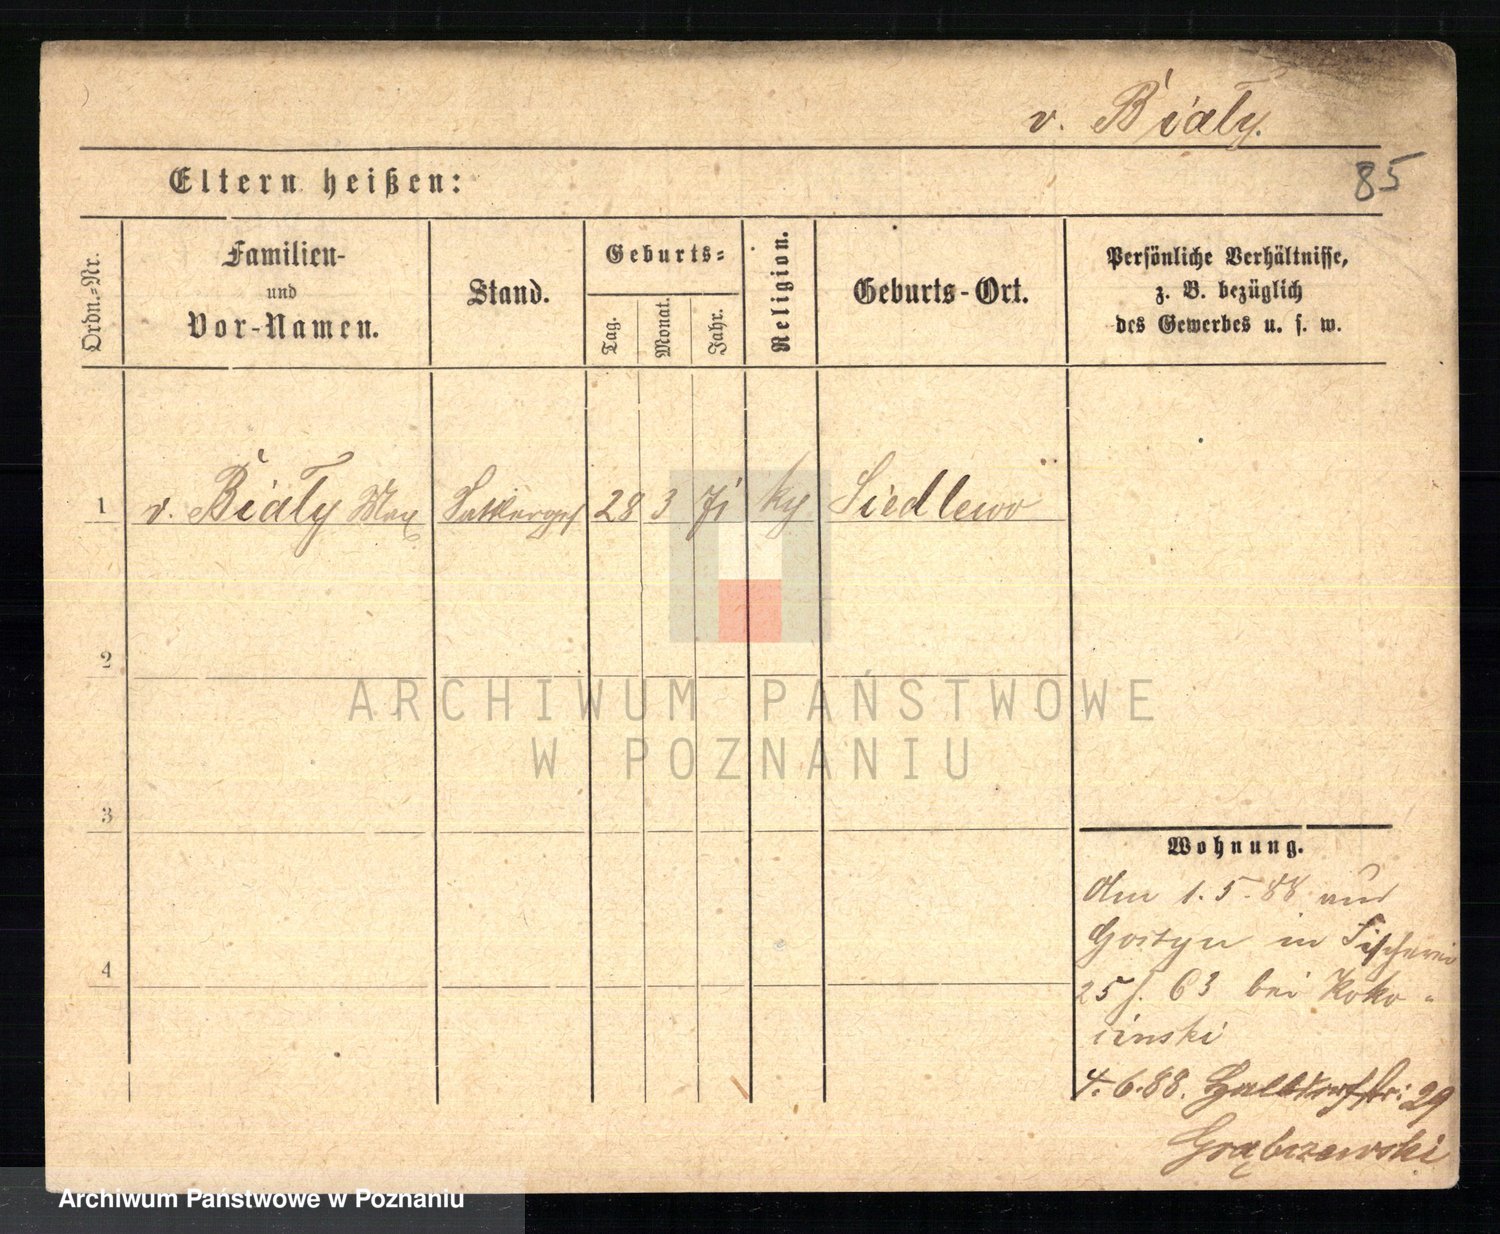 v. Biały.
85
Eltern heißen:
Ordn.-Nr.
Familien-
und
Vor-Namen.
Stand.
Geburts-
Tag.
Monat.
Jahr.
Religion.
Geburts-Ort.
Persönliche Verhältnisse,
z. B. bezüglich
des Gewerbes u. s. w.
1 v. Biały Max Sattlerges 28 3 ky Siedlewo
2
3
4
ARCHIWUM PAŃSTWOWE
W POZNANIU
Wohnung.
Am 1.5.88 aus
Gostyn in Fischerei
25 f. 63 bei Koko-
cinski
4.6.88. Halbdorfstr: 29
Grąbczewski
Archiwum Państwowe w Poznaniu